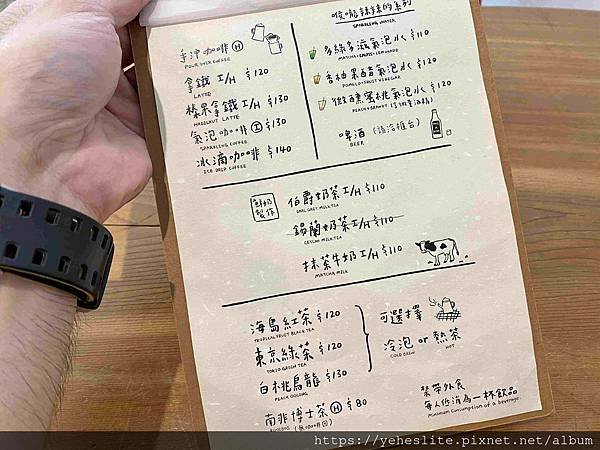 手沖咖啡 Ⓗ
POUR OVER COFFEE
拿鐵 I/H $120
LATTE
榛果拿鐵 I/H $130
HAZELNUT LATTE
氣泡咖啡 Ⓘ $130
SPARKLING COFFEE
冰滴咖啡 $140
ICE DROP COFFEE
喉嚨辣辣的系列
SPARKLING WATER
多綠多滋氣泡水 $110
香柚果醋氣泡水 $120
POMELO+FRUIT VINEGAR
微醺蜜桃氣泡水 $120
啤酒 (請洽櫃台)
BEER
鮮奶
製作
伯爵奶茶 I/H $110
EARL GREY MILK TEA
錫蘭奶茶 I/H $110
CEYLON MILK TEA
抹茶牛奶 I/H $110
MATCHA MILK
海島紅茶 $120
TROPICAL FRUIT BLACK TEA
東京綠茶 $120
TOKYO GREEN TEA
白桃烏龍 $130
PEACH OOLONG
南非博士茶 Ⓗ $80
ROOIBOS (無咖啡因)
可選擇
冷泡 or 熱茶
COLD BREW HOT
禁帶外食
每人低消為一杯飲品
Minimum consumption of a beverage.
https://yeheslite.pixnet.net/album